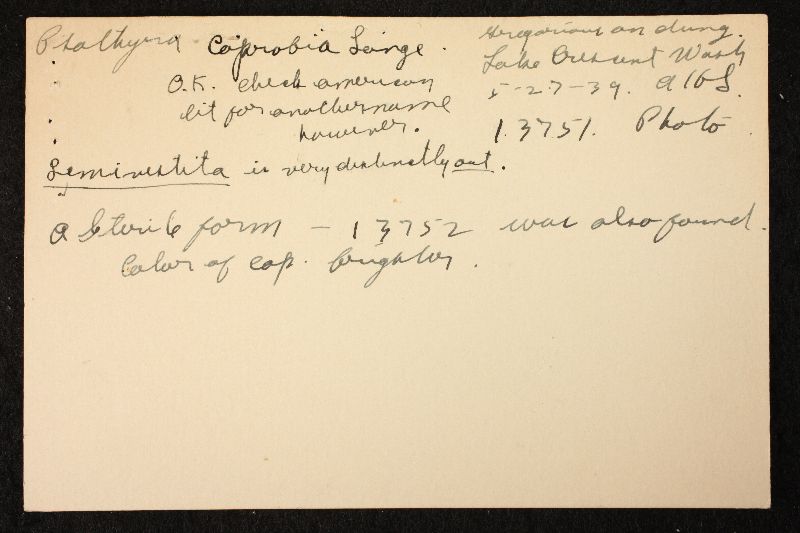 Psathyra Coprobia Lange.
Gregarious on dung.
Lake Crescent Wash
5-27-39. AHS.
13751. Photo
O.K. check american
lit for another name
however.
Semivestita is very distinctly out.
A sterile form - 13752 was also found.
Color of cap brighter.